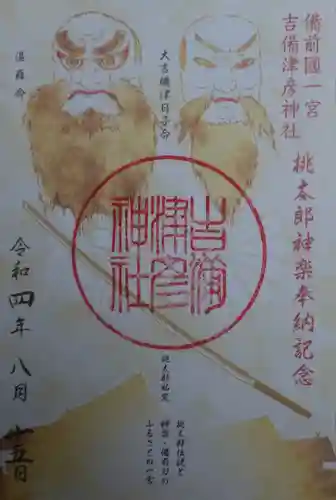 備前國一宮
吉備津彦神社
桃太郎神楽奉納記念
大吉備津日子命
温羅命
吉備
津彦
神社
桃太郎伝説と
神楽・備前刀の
ふるさとの一宮
令和四年八月五日